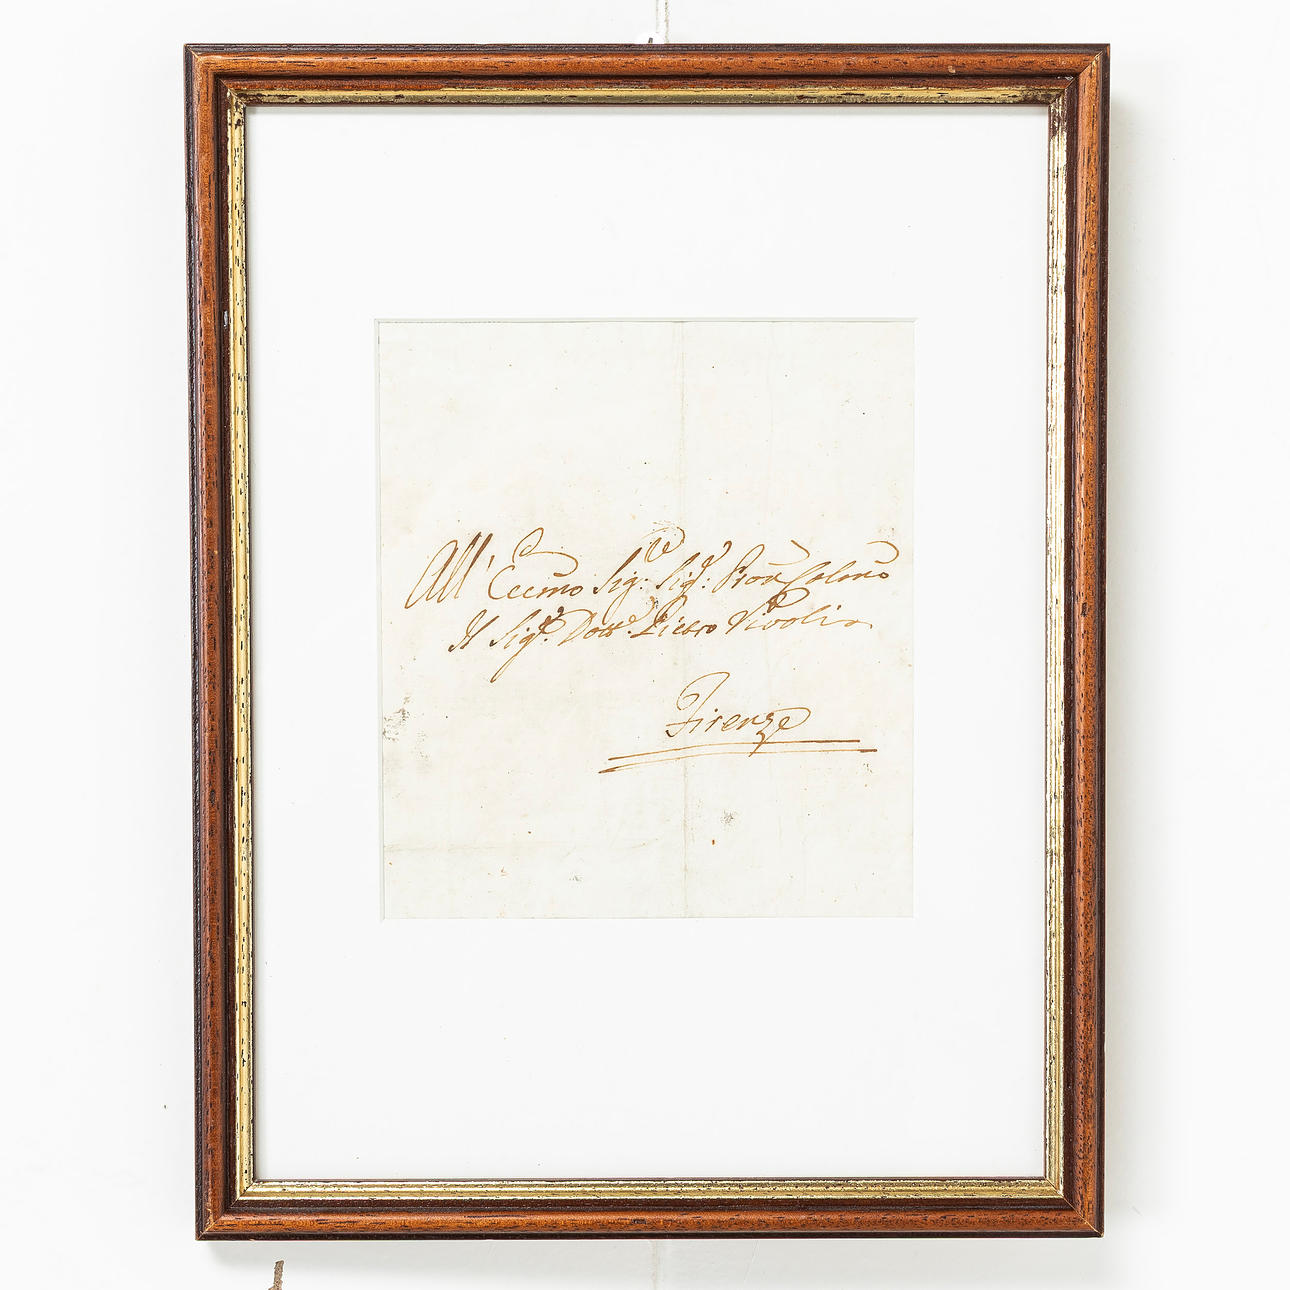 All' Eccmo Sigre Sigr: Pron Colmo
Il Sigr. Dottr. Pietro Rivoli
Firenze